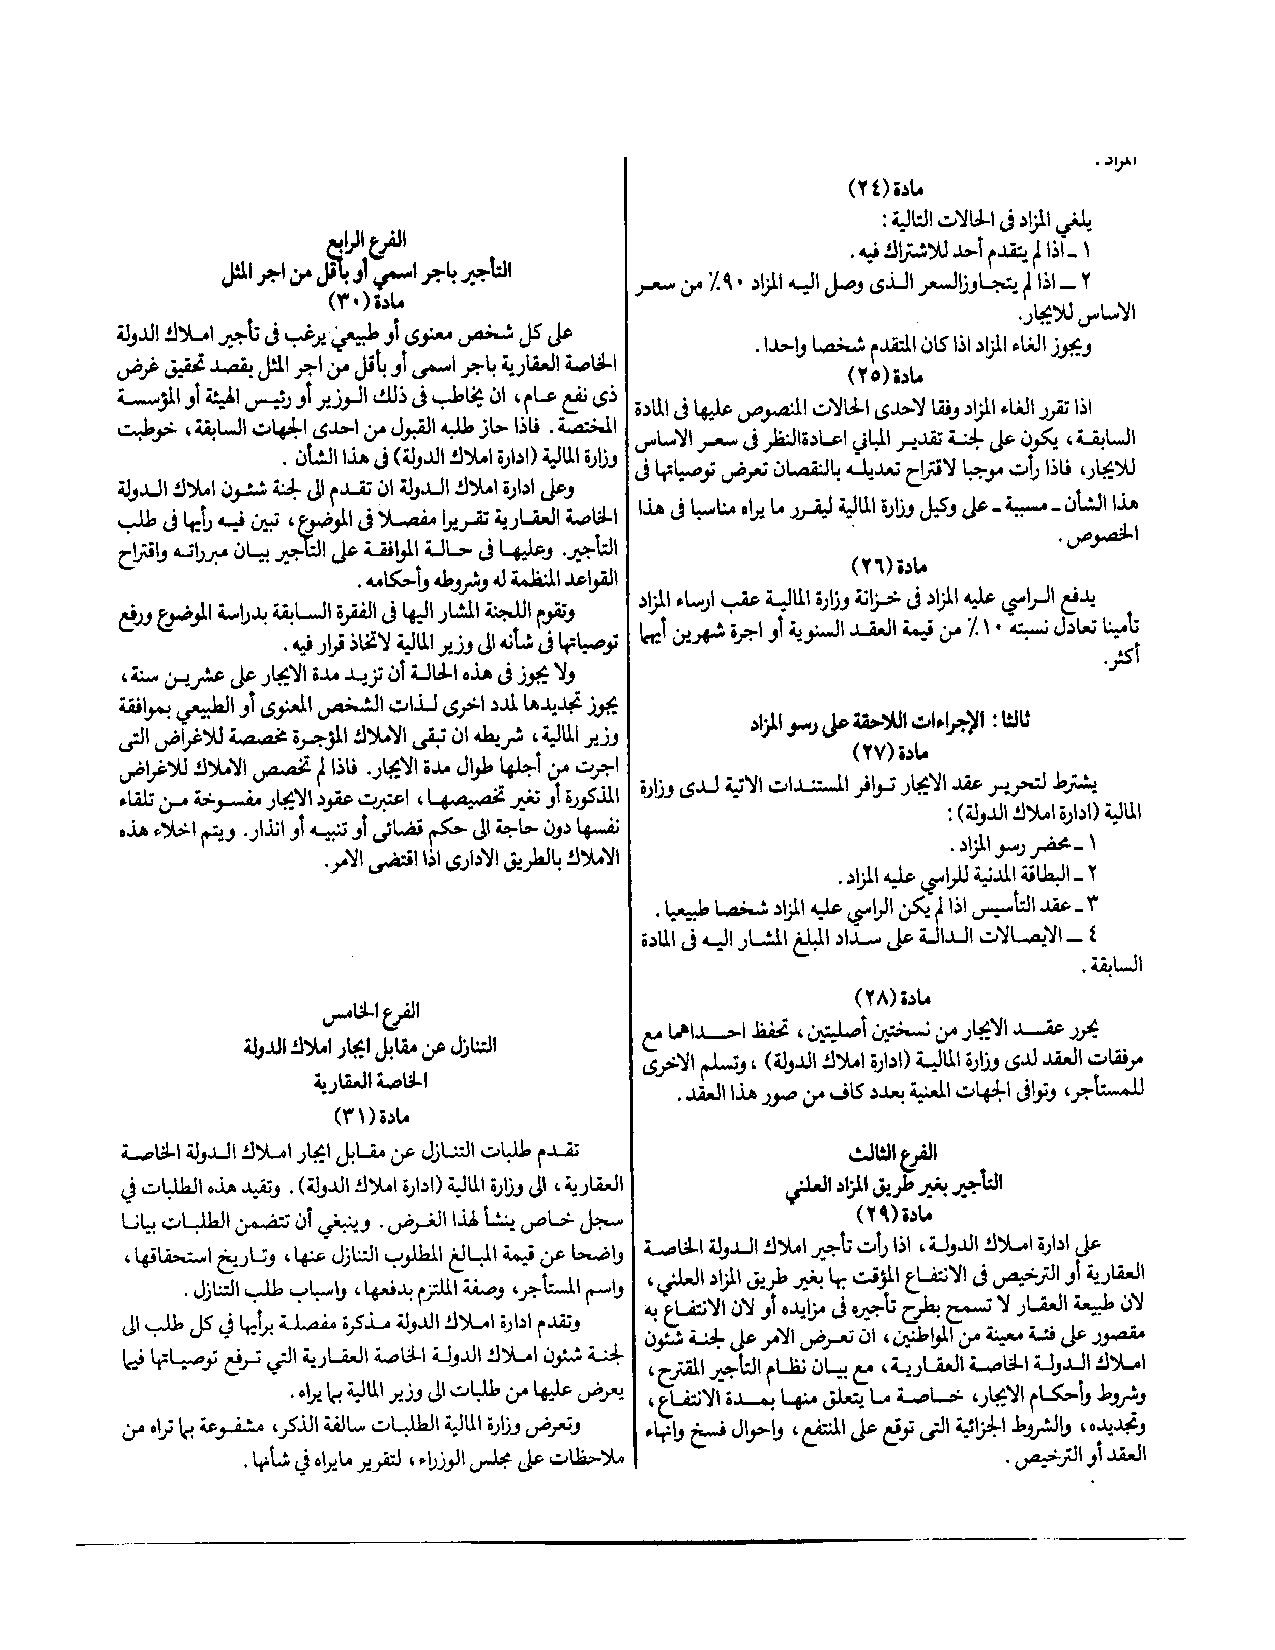 المزاد .
مادة (٢٤)
يلغي المزاد فى الحالات التالية :
١ ـ اذا لم يتقدم أحد للاشتراك فيه .
٢ ـ اذا لم يتجاوزالسعر الذى وصل اليه المزاد ٩٠٪ من سعر
الاساس للايجار.
ويجوز الغاء المزاد اذا كان المتقدم شخصا واحدا .
مادة (٢٥)
اذا تقرر الغاء المزاد وفقا لاحدى الحالات المنصوص عليها فى المادة
السابقة ، يكون على لجنة تقدير المباني اعادةالنظر فى سعر الاساس
للايجار، فاذا رأت موجبا لاقتراح تعديله بالنقصان تعرض توصياتها فى
هذا الشأن ـ مسببة ـ على وكيل وزارة المالية ليقرر ما يراه مناسبا فى هذا
الخصوص .
مادة (٢٦)
يدفع الراسي عليه المزاد فى خزانة وزارة المالية عقب ارساء المزاد
تأمينا تعادل نسبته ١٠٪ من قيمة العقد السنوية أو اجرة شهرين أيهما
أكثر.
ثالثا : الإجراءات اللاحقة على رسو المزاد
مادة (٢٧)
يشترط لتحرير عقد الايجار توافر المستندات الاتية لدى وزارة
المالية (ادارة املاك الدولة) :
١ ـ محضر رسو المزاد .
٢ ـ البطاقة المدنية للراسي عليه المزاد .
٣ ـ عقد التأسيس اذا لم يكن الراسي عليه المزاد شخصا طبيعيا .
٤ ـ الايصالات الدالة على سداد المبلغ المشار اليه فى المادة
السابقة .
مادة (٢٨)
يحرر عقد الايجار من نسختين أصليتين ، تحفظ احداهما مع
مرفقات العقد لدى وزارة المالية (ادارة املاك الدولة) ، وتسلم الاخرى
للمستأجر، وتوافى الجهات المعنية بعدد كاف من صور هذا العقد .
الفرع الثالث
التأجير بغير طريق المزاد العلني
مادة (٢٩)
على ادارة املاك الدولة ، اذا رأت تأجير املاك الدولة الخاصة
العقارية أو الترخيص فى الانتفاع المؤقت بها بغير طريق المزاد العلني ،
لان طبيعة العقار لا تسمح بطرح تأجيره فى مزايده أو لان الانتفاع به
مقصور على فئة معينة من المواطنين ، ان تعرض الامر على لجنة شئون
املاك الدولة الخاصة العقارية ، مع بيان نظام التأجير المقترح ،
وشروط وأحكام الايجار، خاصة ما يتعلق منها بمدة الانتفاع ،
وتجديده ، والشروط الجزائية التى توقع على المنتفع ، واحوال فسخ وانهاء
العقد أو الترخيص .
الفرع الرابع
التأجير باجر اسمي أو بأقل من اجر المثل
مادة (٣٠)
على كل شخص معنوى أو طبيعي يرغب فى تأجير املاك الدولة
الخاصة العقارية باجر اسمى أو بأقل من اجر المثل بقصد تحقيق غرض
ذى نفع عام ، ان يخاطب فى ذلك الوزير أو رئيس الهيئة أو المؤسسة
المختصة . فاذا حاز طلبه القبول من احدى الجهات السابقة ، خوطبت
وزارة المالية (ادارة املاك الدولة) فى هذا الشأن .
وعلى ادارة املاك الدولة ان تقدم الى لجنة شئون املاك الدولة
الخاصة العقارية تقريرا مفصلا فى الموضوع ، تبين فيه رأيها فى طلب
التأجير. وعليها فى حالة الموافقة على التأجير بيان مبرراته واقتراح
القواعد المنظمة له وشروطه وأحكامه .
وتقوم اللجنة المشار اليها فى الفقرة السابقة بدراسة الموضوع ورفع
توصياتها فى شأنه الى وزير المالية لاتخاذ قرار فيه .
ولا يجوز فى هذه الحالة أن تزيد مدة الايجار على عشرين سنة ،
يجوز تجديدها لمدد اخرى لذات الشخص المعنوى أو الطبيعي بموافقة
وزير المالية ، شريطه ان تبقى الاملاك المؤجرة مخصصة للاغراض التى
اجرت من أجلها طوال مدة الايجار. فاذا لم تخصص الاملاك للاغراض
المذكورة أو تغير تخصيصها ، اعتبرت عقود الايجار مفسوخة من تلقاء
نفسها دون حاجة الى حكم قضائى أو تنبيه أو انذار. ويتم اخلاء هذه
الاملاك بالطريق الادارى اذا اقتضى الامر.
الفرع الخامس
التنازل عن مقابل ايجار املاك الدولة
الخاصة العقارية
مادة (٣١)
تقدم طلبات التنازل عن مقابل ايجار املاك الدولة الخاصة
العقارية ، الى وزارة المالية (ادارة املاك الدولة) . وتقيد هذه الطلبات في
سجل خاص ينشأ لهذا الغرض . وينبغي أن تتضمن الطلبات بيانا
واضحا عن قيمة المبالغ المطلوب التنازل عنها ، وتاريخ استحقاقها ،
واسم المستأجر، وصفة الملتزم بدفعها ، واسباب طلب التنازل .
وتقدم ادارة املاك الدولة مذكرة مفصلة برأيها في كل طلب الى
لجنة شئون املاك الدولة الخاصة العقارية التي ترفع توصياتها فيما
يعرض عليها من طلبات الى وزير المالية بما يراه .
وتعرض وزارة المالية الطلبات سالفة الذكر، مشفوعة بما تراه من
ملاحظات على مجلس الوزراء ، لتقرير مايراه في شأنها .